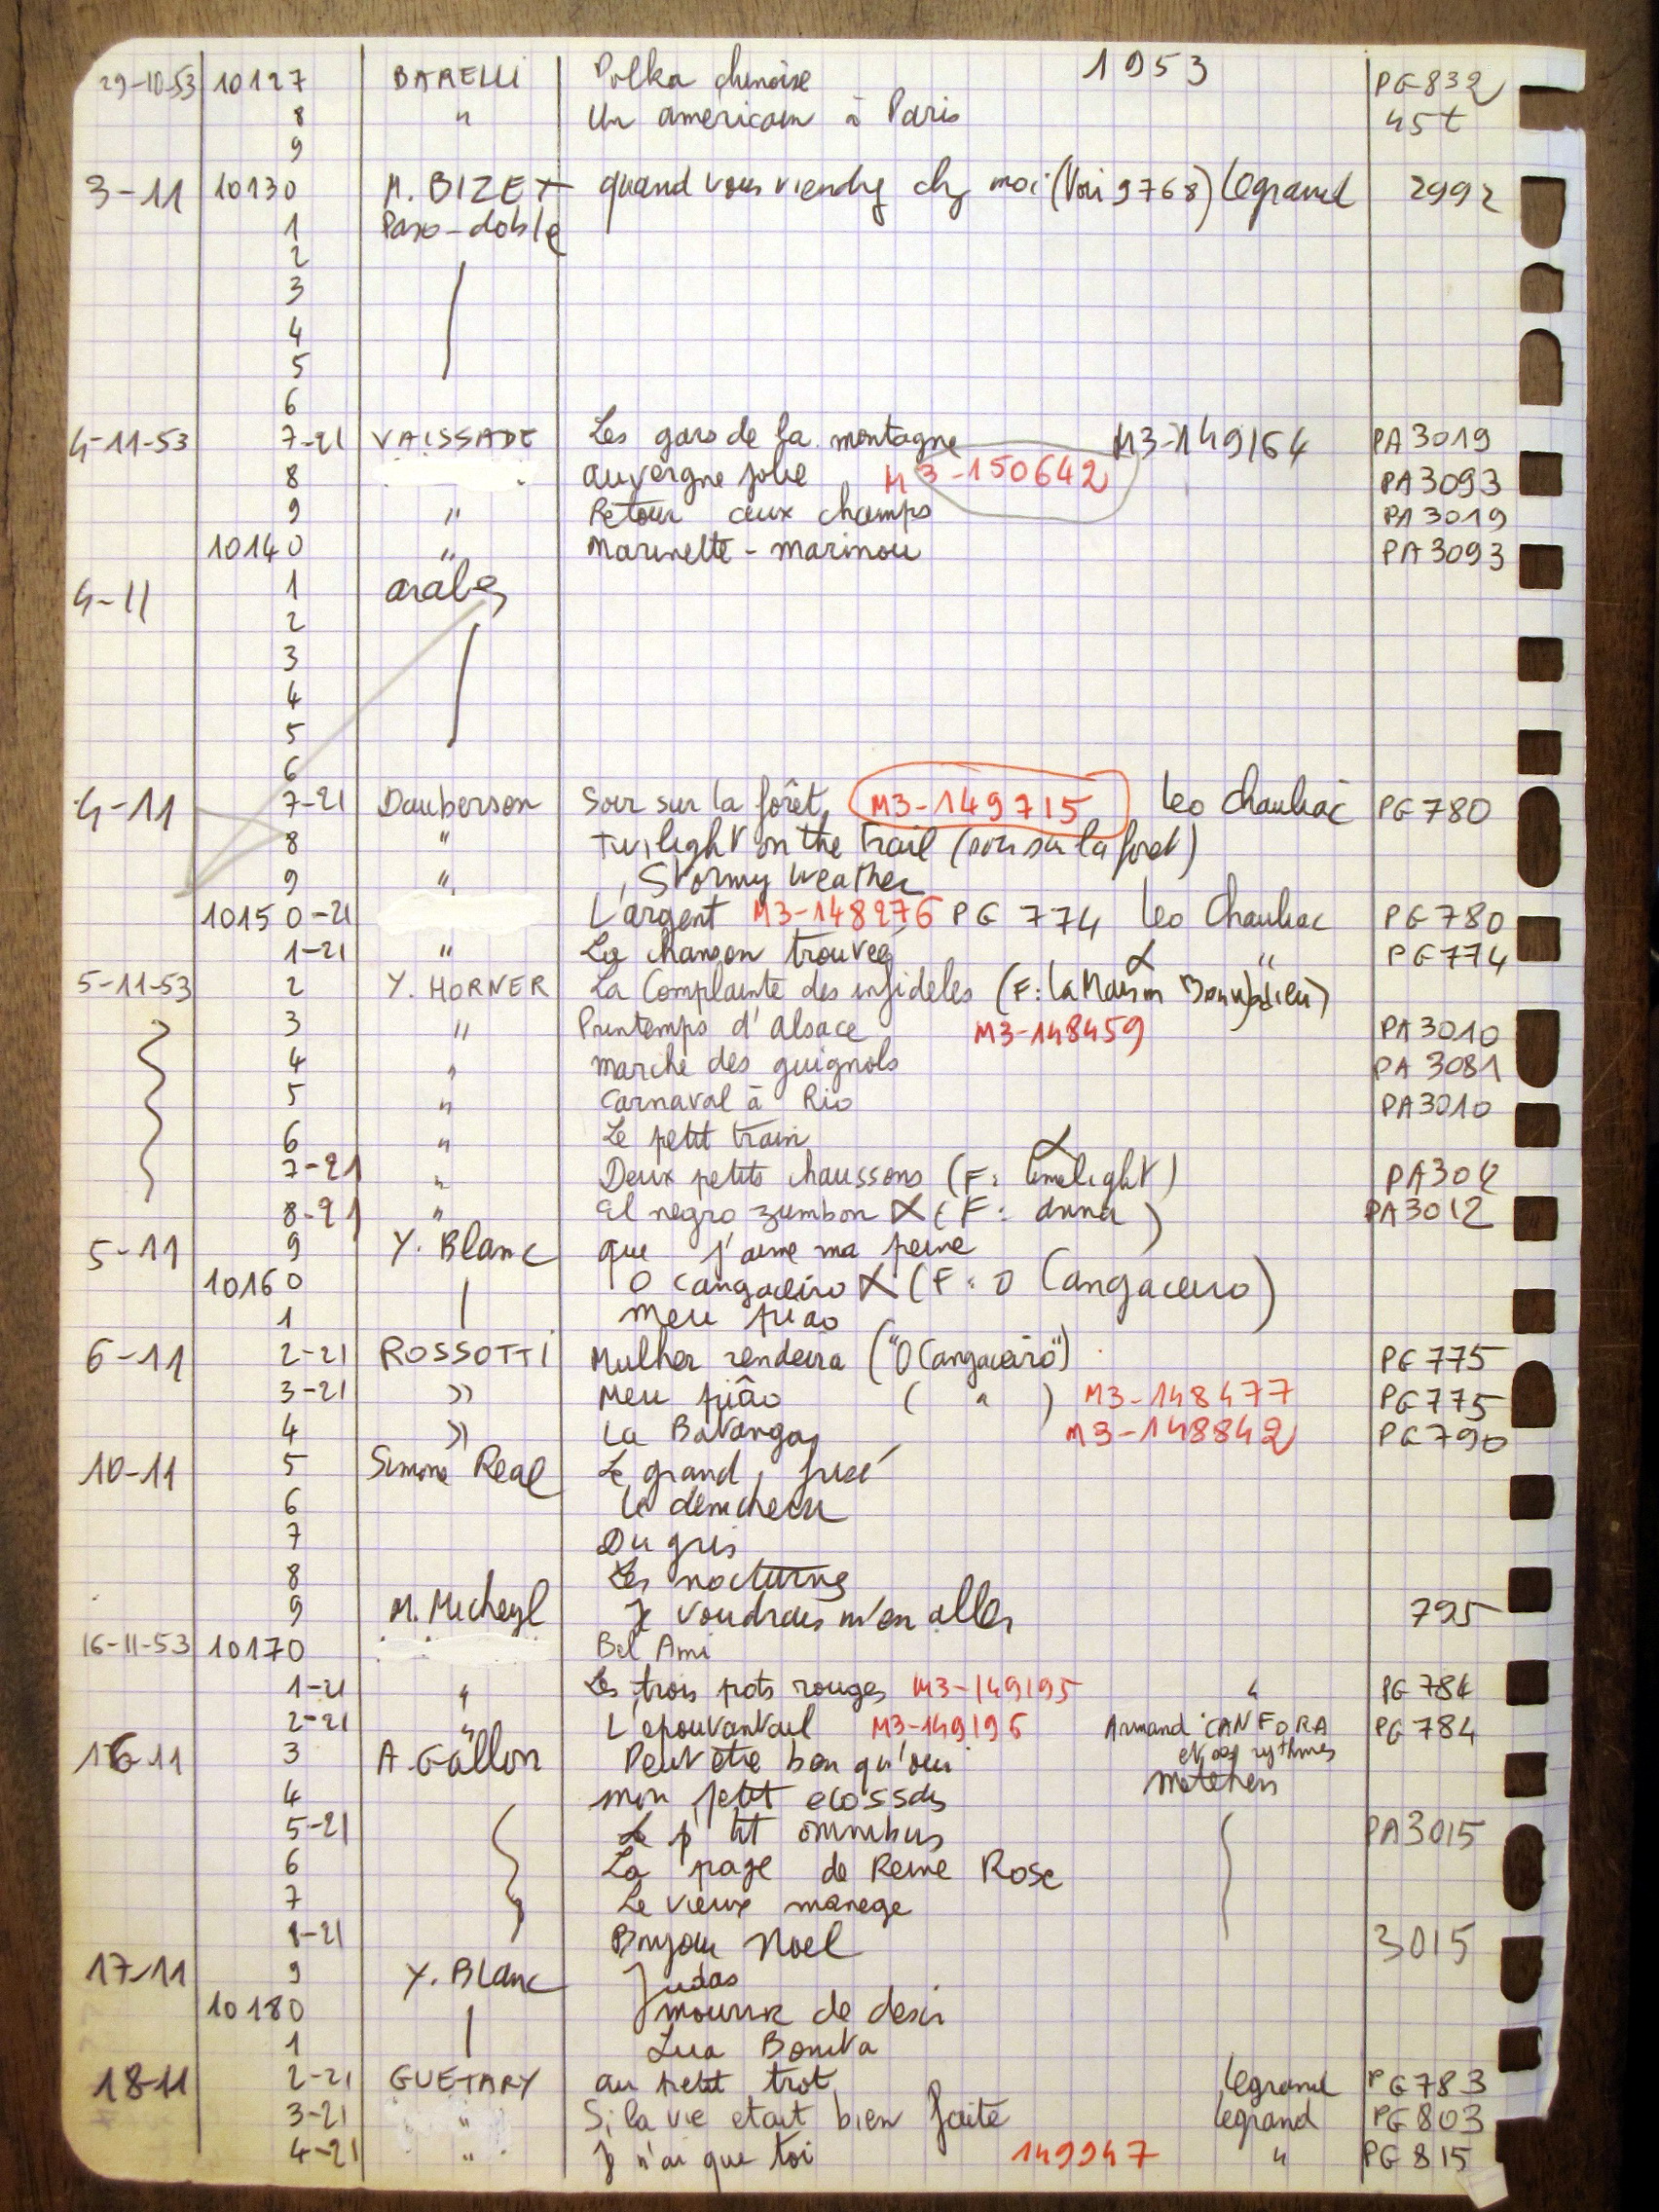 1953
29-10-53 10127 BARELLI Polka chinoise PG 832
8 " Un americain à Paris 45t
9
3-11 10130 M. BIZET quand vous viendrez chez moi (Voir 9768) Legrand 2992
1 Paso-doble
2
3
4
5
6
4-11-53 7-21 VAISSADE Les gars de la montagne M3-149164 PA 3019
8 auvergne jolie M3-150642 PA 3093
9 " Retour aux champs PA 3019
10140 " Marinette - marinou PA 3093
4-11 1 arabes
2
3
4
5
6
4-11 7-21 Dauberson Soir sur la forêt M3-149715 Leo Chauliac PG 780
8 " Twilight on the trail (soir sur la foret)
9 " Stormy Weather
10150-21 L'argent M3-148276 PG 774 Leo Chauliac PG 780
1-21 " La chanson trouvée " PG 774
5-11-53 2 Y. HORNER La Complainte des infideles (F: La Maison Bonnadieu)
3 " Printemps d'alsace M3-148459 PA 3010
4 " marche des guignols PA 3081
5 " Carnaval à Rio PA 3010
6 " Le petit train
7-21 " Deux petits chaussons (F: limelight)
8-21 " El negro zumbon X (F: anna) PA 3012
5-11 9 Y. Blanc que j'aime ma peine
10160 O cangaceiro X (F: O Cangaceiro)
1 meu piao
6-11 2-21 ROSSOTTI Mulher rendeira ("O Cangaceiro") PG 775
3-21 » Meu piâo ( " ) M3-148477 PG 775
4 » La Bavanga M3-148842 PG 790
10-11 5 Simone Real Le grand frisé
6 Le denicheur
7 Du gris
8 Les nocturnes
9 M. Micheyl Je voudrais m'en aller 795
16-11-53 10170 Bel Ami
1-21 " Les trois pots rouges M3-149195 " PG 784
2-21 " L'epouvantail M3-149196 Armand CANFORA PG 784
et ses rythmes
16-11 3 A. Gallon Peut etre ben qu'oui
4 mon petit ecossais Metehen
5-21 Le p'tit omnibus PA 3015
6 La page de Reine Rose
7 Le vieux manege
8-21 Bonjour Noel 3015
17-11 9 Y. Blanc Judas
10180 mourir de desir
1 Lua Bonita
18-11 2-21 GUETARY au petit trot Legrand PG 783
3-21 " Si la vie etait bien faite Legrand PG 803
4-21 " Je n'ai que toi 149947 " PG 815